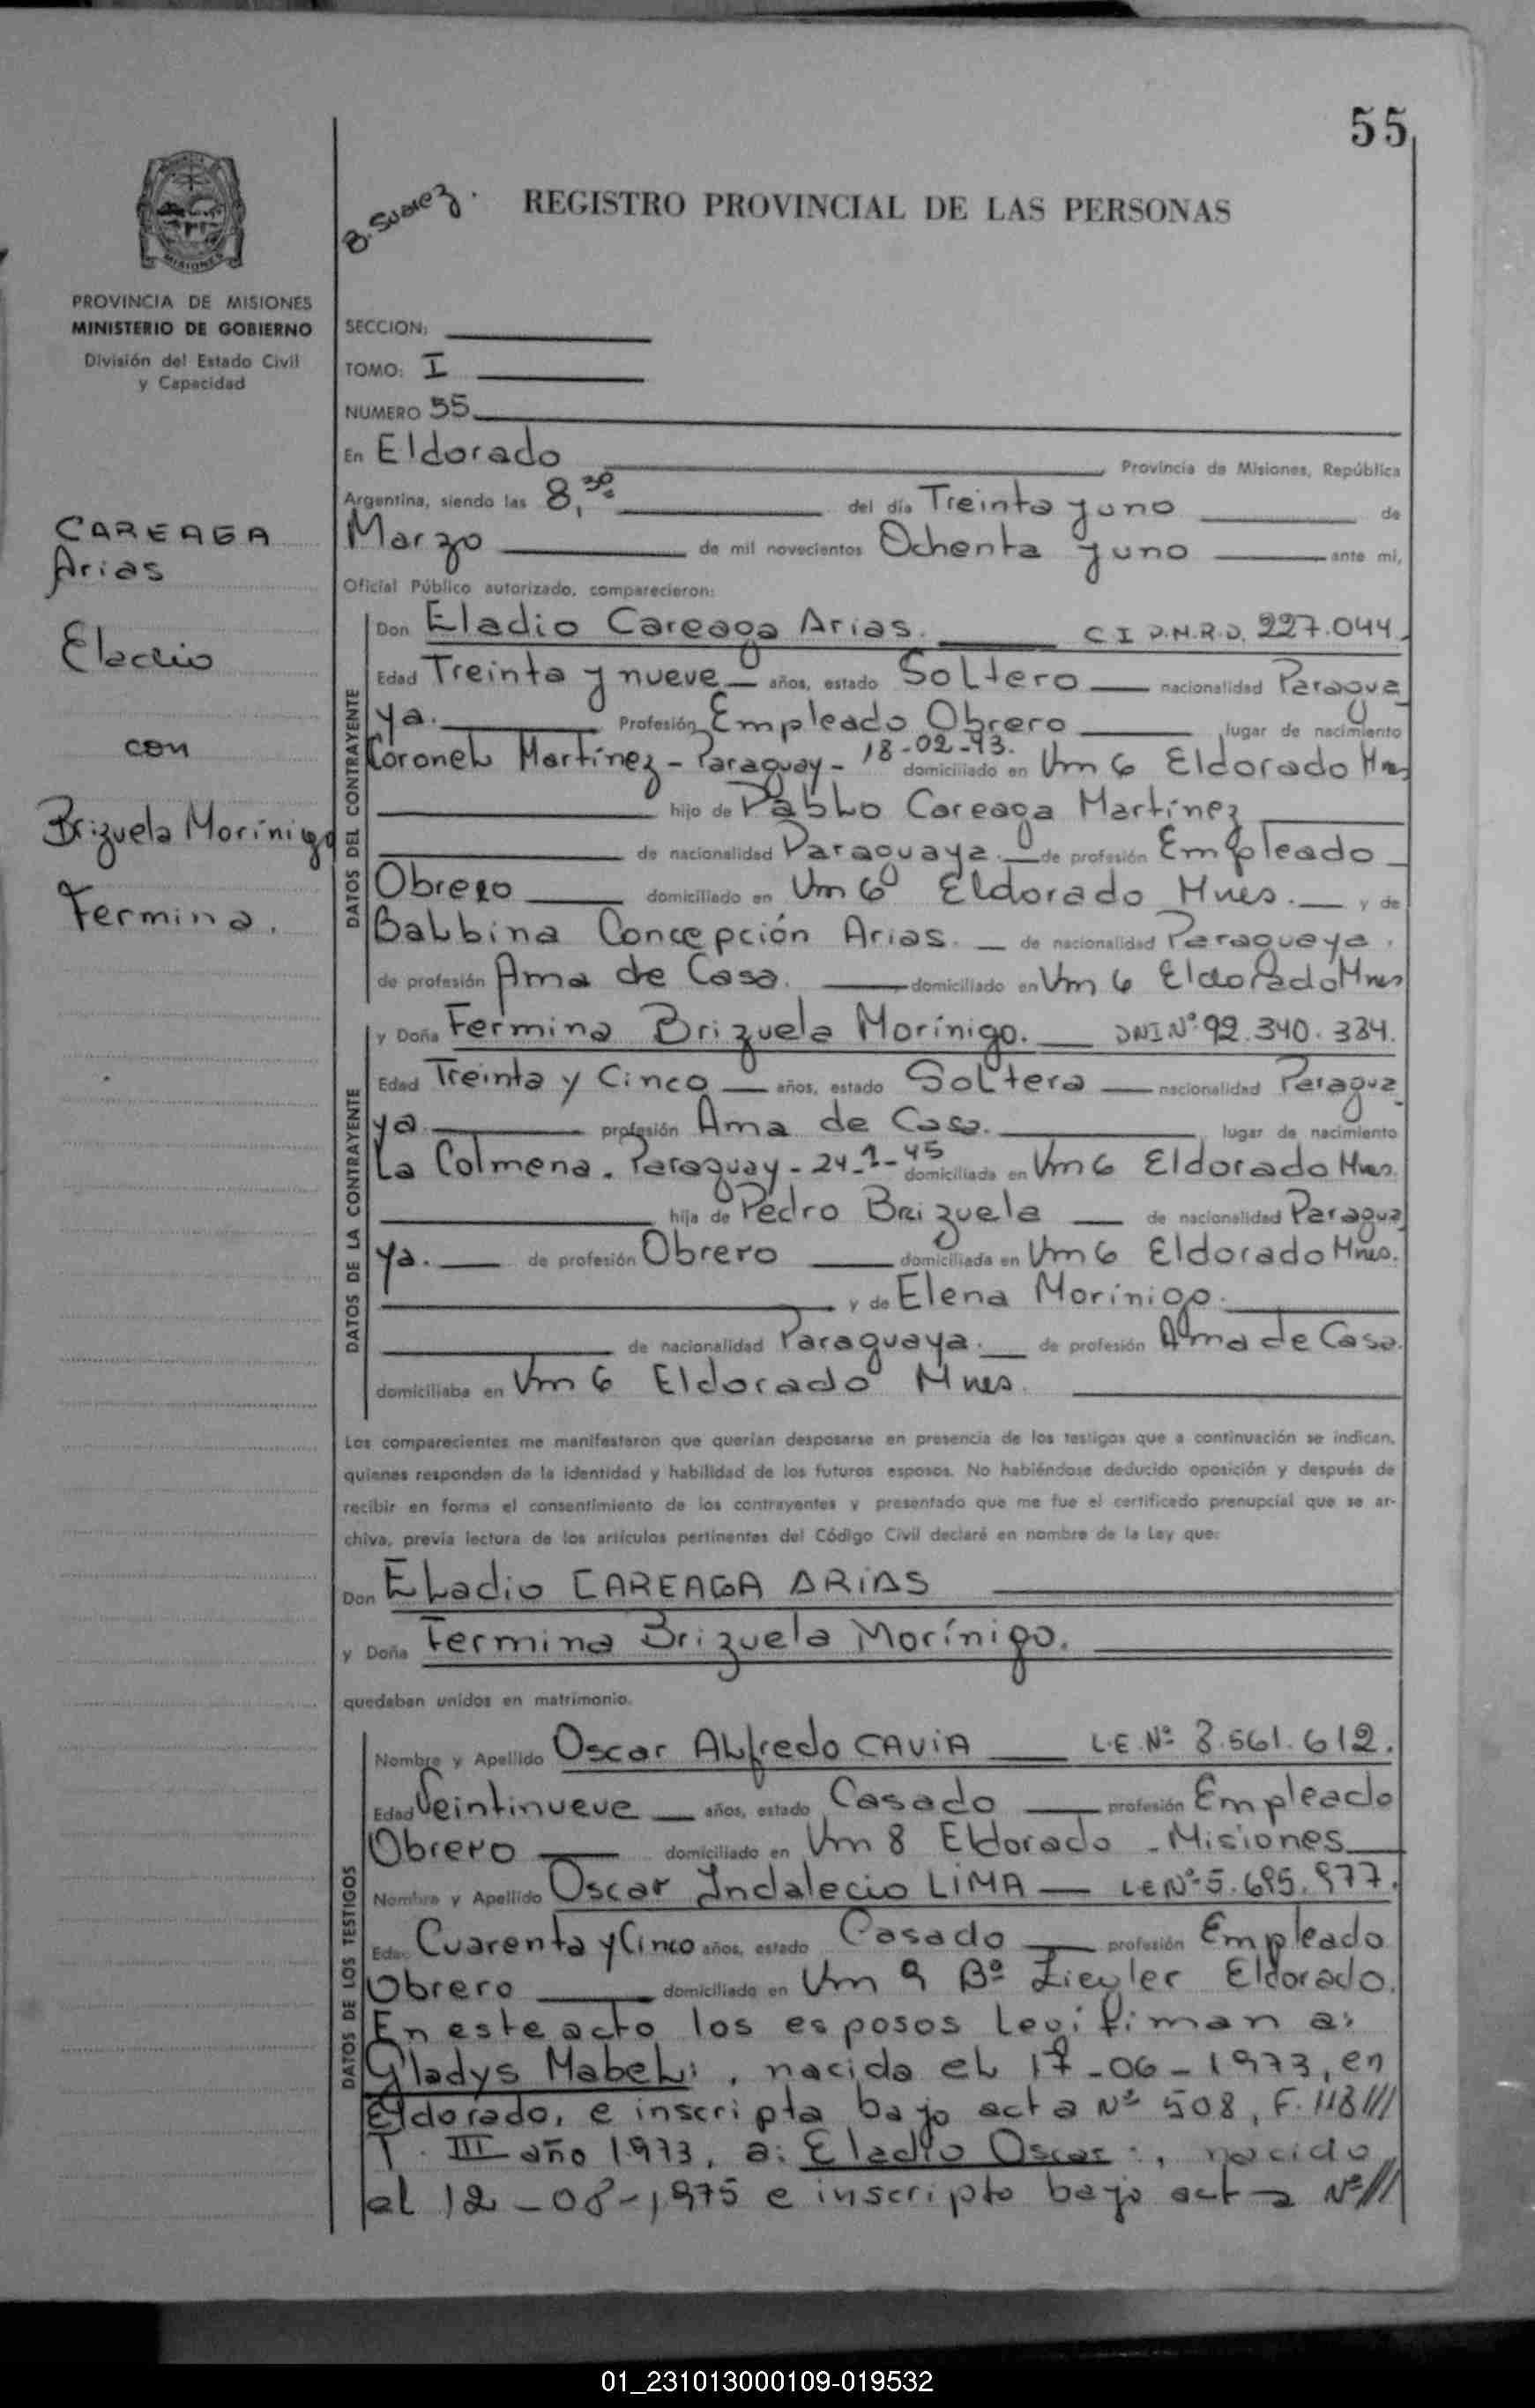 55
B. Suarez.
REGISTRO PROVINCIAL DE LAS PERSONAS
MISIONES
PROVINCIA DE MISIONES
MINISTERIO DE GOBIERNO
División del Estado Civil
y Capacidad
CAREAGA
Arias
Eladio
con
Brizuela Morínigo
Fermina.
SECCION:
TOMO: I
NUMERO 55
En Eldorado Provincia de Misiones, República
Argentina, siendo las 8,30 del día Treinta y uno de
Marzo de mil novecientos Ochenta y uno ante mi,
Oficial Público autorizado, comparecieron:
DATOS DEL CONTRAYENTE
Don Eladio Careaga Arias. C I D.N.R.D. 227.044.
Edad Treinta y nueve años, estado Soltero nacionalidad Paragua
ya. Profesión Empleado Obrero lugar de nacimiento
Coronel Martínez - Paraguay - 18-02-43. domiciliado en Vm 6 Eldorado Mnes
hijo de Pablo Careaga Martínez
de nacionalidad Paraguaya. de profesión Empleado
Obrero domiciliado en Vm 6 Eldorado Mnes. y de
Balbina Concepción Arias. de nacionalidad Paraguaya.
de profesión Ama de Casa. domiciliado en Vm 6 Eldorado Mnes
DATOS DE LA CONTRAYENTE
y Doña Fermina Brizuela Morínigo. DNI Nº 92.340.334.
Edad Treinta y Cinco años, estado Soltera nacionalidad Paragua
ya. profesión Ama de Casa. lugar de nacimiento
La Colmena. Paraguay - 24-1-45 domiciliada en Vm 6 Eldorado Mnes.
hija de Pedro Brizuela de nacionalidad Paragua
ya. de profesión Obrero domiciliada en Vm 6 Eldorado Mnes.
y de Elena Morínigo.
de nacionalidad Paraguaya. de profesión Ama de Casa.
domiciliaba en Vm 6 Eldorado Mnes.
Los comparecientes me manifestaron que querían desposarse en presencia de los testigos que a continuación se indican,
quienes responden de la identidad y habilidad de los futuros esposos. No habiéndose deducido oposición y después de
recibir en forma el consentimiento de los contrayentes y presentado que me fue el certificado prenupcial que se ar-
chiva, previa lectura de los artículos pertinentes del Código Civil declaré en nombre de la Ley que:
Don Eladio CAREAGA ARIAS
y Doña Fermina Brizuela Morínigo.
quedaban unidos en matrimonio.
DATOS DE LOS TESTIGOS
Nombre y Apellido Oscar Alfredo CAVIA L.E. Nº 8.561.612.
Edad Veintinueve años, estado Casado profesión Empleado
Obrero domiciliado en Vm 8 Eldorado - Misiones
Nombre y Apellido Oscar Indalecio LIMA LE Nº 5.695.977.
Edad Cuarenta y Cinco años, estado Casado profesión Empleado
Obrero domiciliado en Vm 9 Bº Ziegler Eldorado.
En este acto los esposos Legitiman a:
Gladys Mabel:, nacida el 17-06-1973, en
Eldorado, e inscripta bajo acta Nº 508, F. 118///
T. III año 1973, a: Eladio Oscar:, nacido
el 12-08-1975 e inscripto bajo acta Nº//
01_231013000109-019532